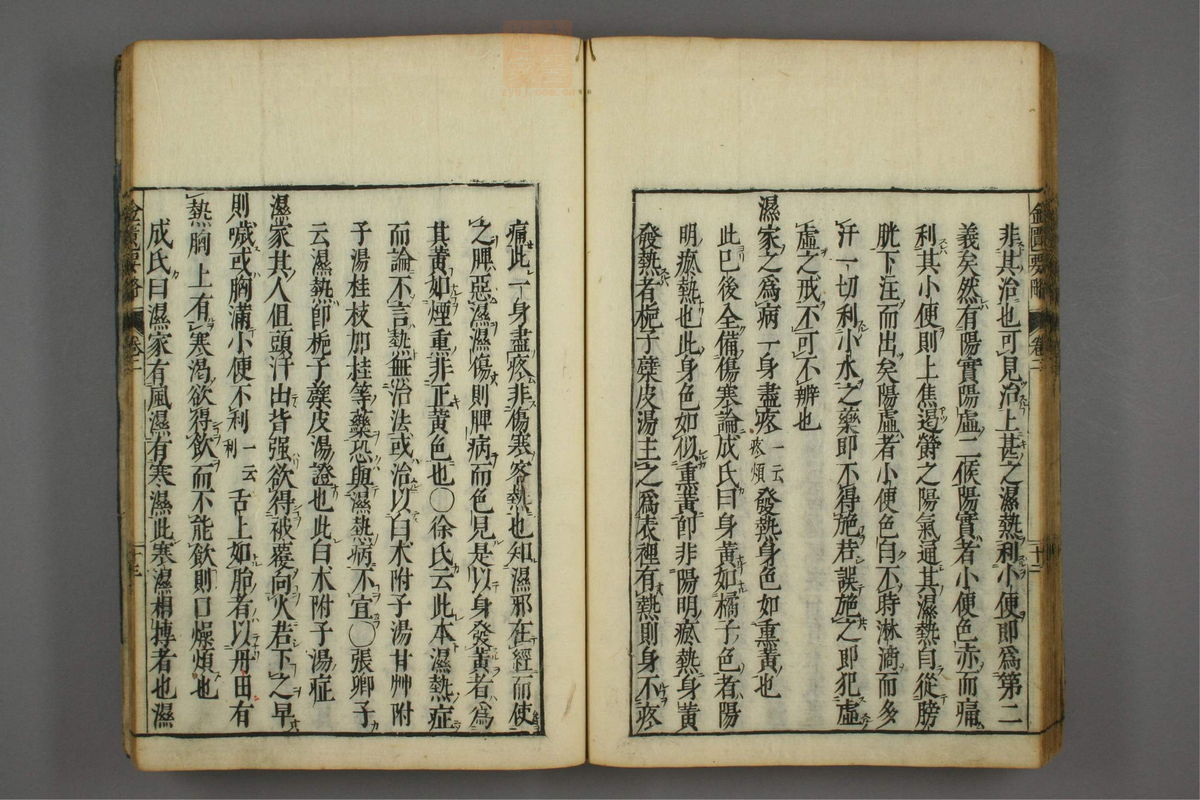 金匱要略 卷二 十二
非其治也可見治上甚之濕熱利小便即爲第二
義矣然有陽實陽虛二候陽實者小便色赤而痛
利其小便則上焦遏鬱之陽氣通其濕熱自從膀
胱下注而出矣陽虛者小便色白不時淋滴而多
汗一切利小水之藥即不得施若誤施之即犯虛
虛之戒不可不辨也
濕家之爲病一身盡疼一云疼煩發熱身色如熏黃也
此已後全備傷寒論成氏曰身黃如橘子色者陽
明瘀熱也此身色如似熏黃即非陽明瘀熱身黃
發熱者梔子蘗皮湯主之爲表裡有熱則身不疼
痛此一身盡疼非傷寒客熱也知濕邪在經而使
之脾惡濕濕傷則脾病而色見是以身發黃者爲
其黃如煙熏非正黃色也○徐氏云此本濕熱症
而論不言熱無治法或治以白朮附子湯甘艸附
子湯桂枝加桂等藥恐與濕熱病不宜○張卿子
云濕熱即梔子蘗皮湯證也此白朮附子湯症
濕家其人但頭汗出背强欲得被覆向火若下之早
則噦或胸滿小便不利一云利舌上如胎者以丹田有
熱胸上有寒渴欲得飲而不能飲則口燥煩也
成氏曰濕家有風濕有寒濕此寒濕相摶者也濕
金匱要略 卷二 十三